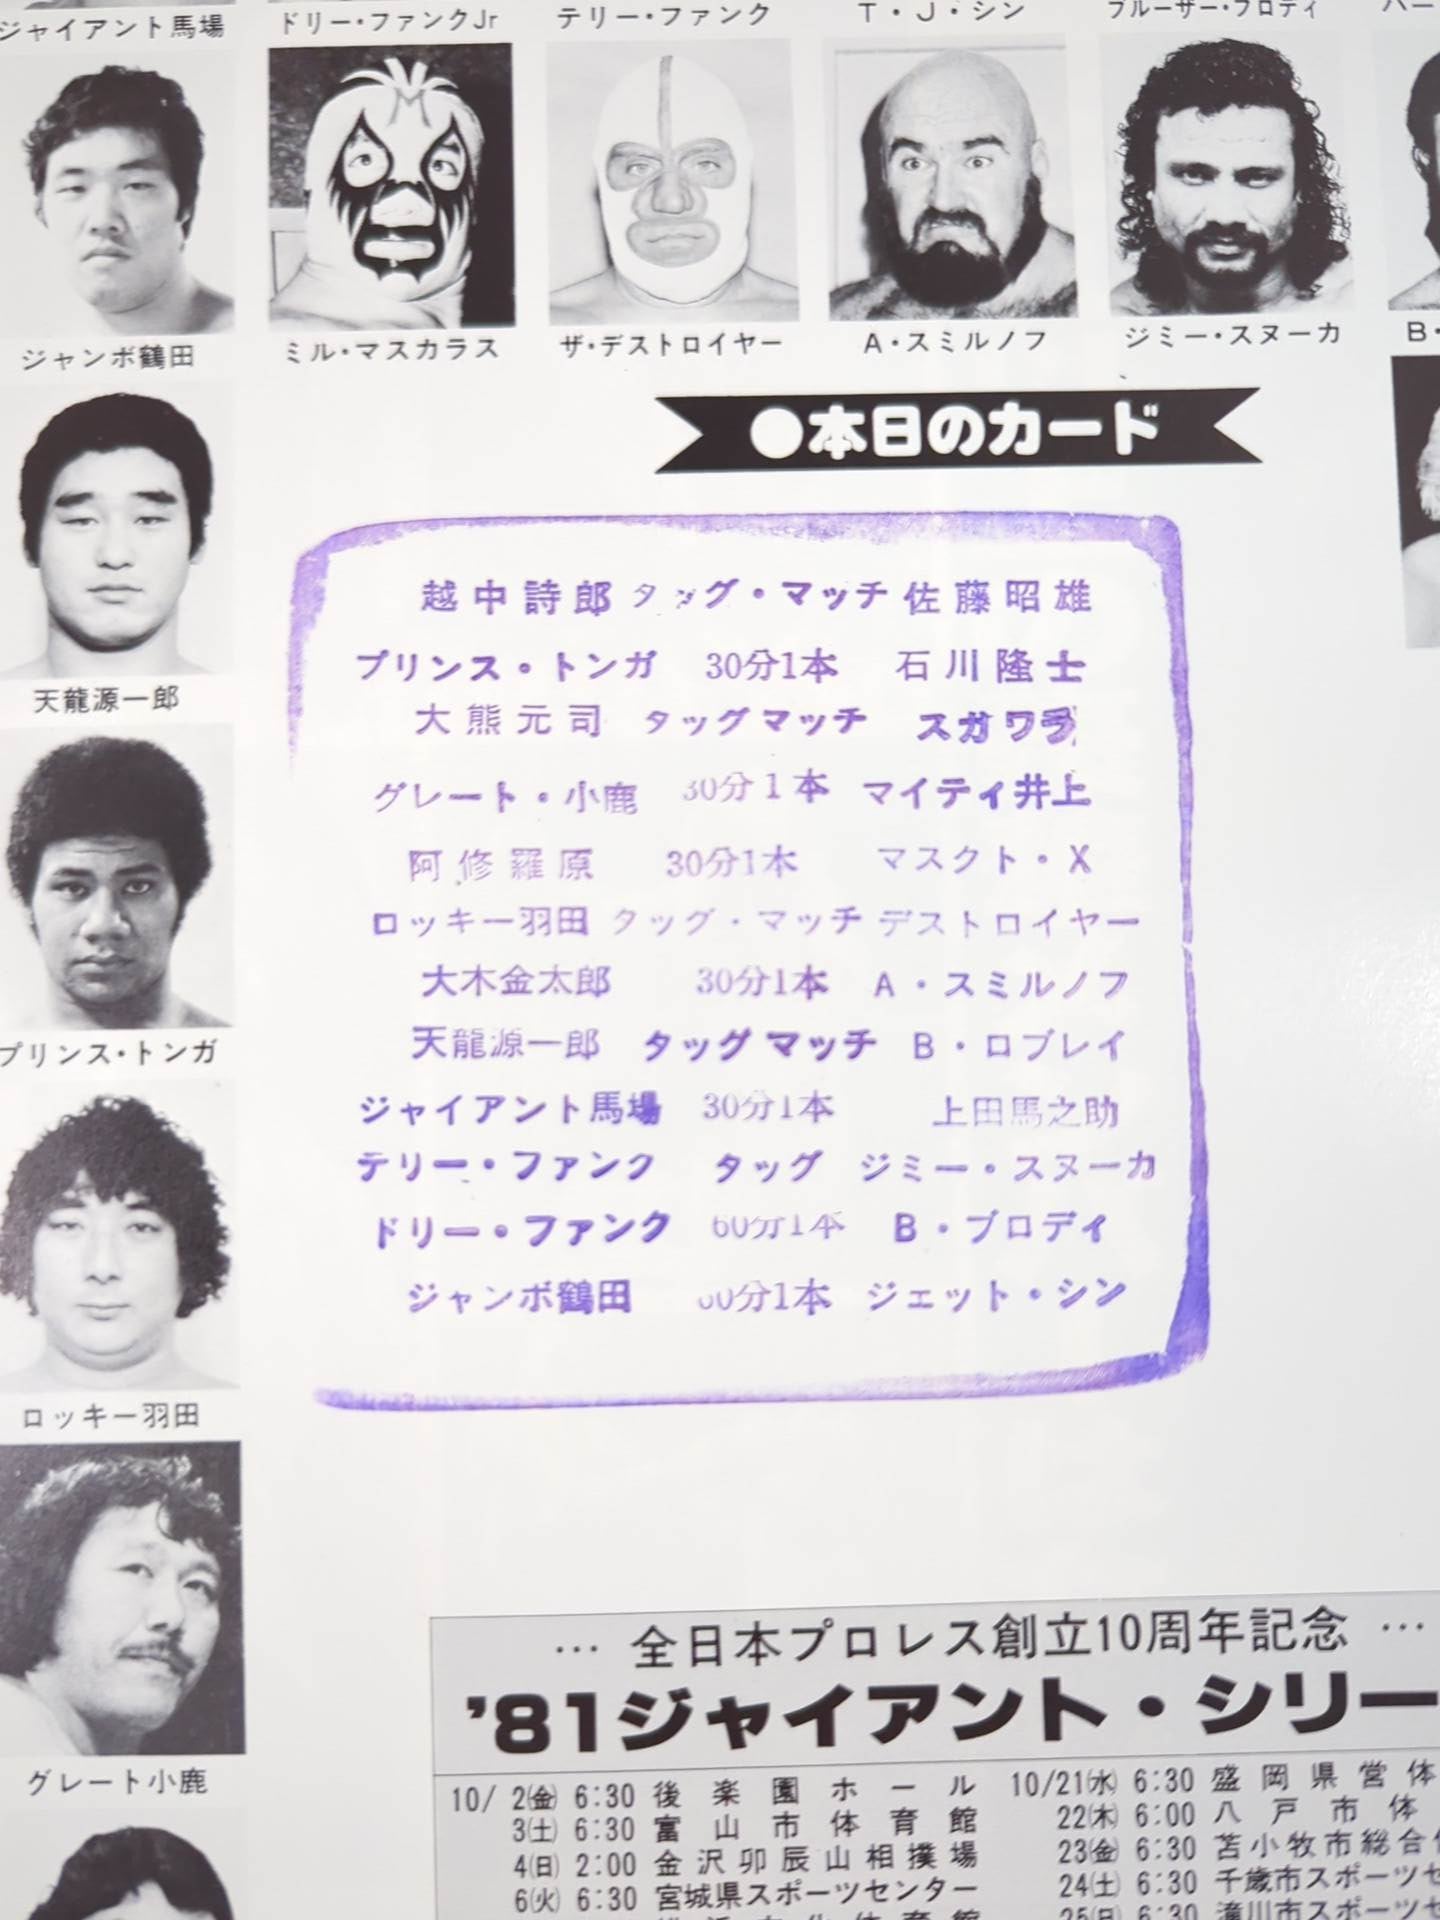 ジャイアント馬場 ドリー・ファンクJr テリー・ファンク T・J・シン ブルーザー・ブロディ
ジャンボ鶴田 ミル・マスカラス ザ・デストロイヤー A・スミルノフ ジミー・スヌーカ B・
●本日のカード
越中詩郎 タッグ・マッチ 佐藤昭雄
プリンス・トンガ 30分1本 石川隆士
大熊元司 タッグマッチ スガワラ
グレート・小鹿 30分1本 マイティ井上
阿修羅原 30分1本 マスクト・X
ロッキー羽田 タッグ・マッチ デストロイヤー
大木金太郎 30分1本 A・スミルノフ
天龍源一郎 タッグマッチ B・ロブレイ
ジャイアント馬場 30分1本 上田馬之助
テリー・ファンク タッグ ジミー・スヌーカ
ドリー・ファンク 60分1本 B・ブロディ
ジャンボ鶴田 60分1本 ジェット・シン
天龍源一郎
プリンス・トンガ
ロッキー羽田
グレート小鹿
… 全日本プロレス創立10周年記念 …
'81ジャイアント・シリー
10/ 2㈮ 6:30 後楽園ホール
3㈯ 6:30 富山市体育館
4㈰ 2:00 金沢卯辰山相撲場
6㈫ 6:30 宮城県スポーツセンター
10/21㈬ 6:30 盛岡県営体
22㈭ 6:00 八戸市体
23㈮ 6:30 苫小牧市総合体
24㈯ 6:30 千歳市スポーツセ
25㈰ 6:30 滝川市スポーツセ